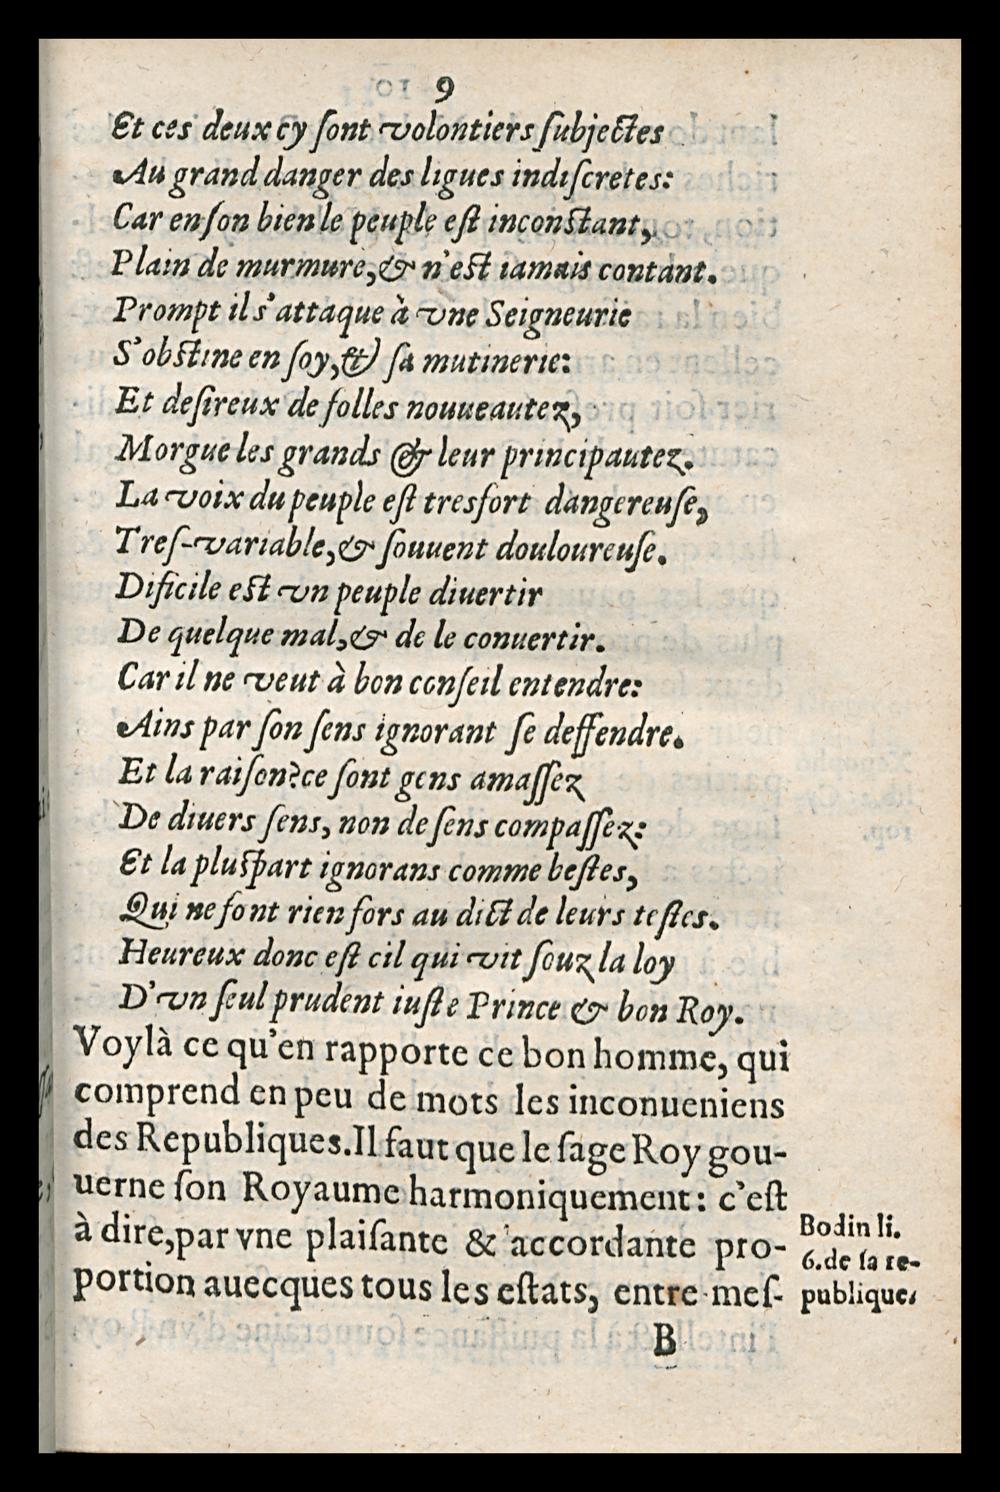 9
Et ces deux cy ſont volontiers ſubjectes
Au grand danger des ligues indiſcretes:
Car en ſon bien le peuple eſt inconſtant,
Plain de murmure, & n'eſt iamais contant.
Prompt il s'attaque à vne Seigneurie
S'obſtine en ſoy, & ſa mutinerie:
Et deſireux de folles nouueautez,
Morgue les grands & leur principautez.
La voix du peuple eſt tresfort dangereuſe,
Treſ-variable, & ſouuent douloureuſe.
Dificile eſt vn peuple diuertir
De quelque mal, & de le conuertir.
Car il ne veut à bon conſeil entendre:
Ains par ſon ſens ignorant ſe deffendre.
Et la raiſon? ce ſont gens amaſſez
De diuers ſens, non de ſens compaſſez:
Et la pluſpart ignorans comme beſtes,
Qui ne font rien fors au dict de leurs teſtes.
Heureux donc eſt cil qui vit ſouz la loy
D'vn ſeul prudent iuſte Prince & bon Roy.
Voylà ce qu'en rapporte ce bon homme, qui
comprend en peu de mots les inconueniens
des Republiques. Il faut que le ſage Roy gou-
uerne ſon Royaume harmoniquement: c'eſt
à dire, par vne plaiſante & accordante pro-
portion auecques tous les eſtats, entre meſ-
Bodin li.
6. de ſa re-
publique.
B